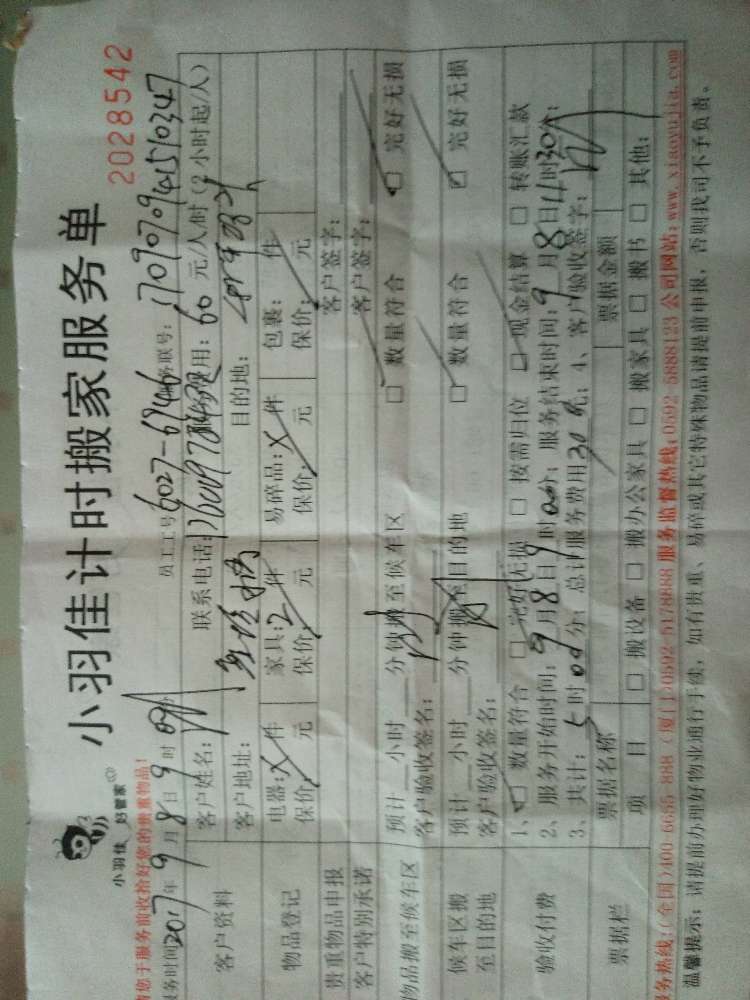 小羽佳计时搬家服务单
小羽佳 好管家
2028542
请您于服务前收拾好您的贵重物品!
员工工号6027-6946 服务联号: 1709070941510347
服务时间2017年9月8日9时00分
客户资料
客户姓名: 联系电话: 费用: 60元/人/时(2小时起/人)
客户地址: 目的地:
物品登记
电器: X件 家具: 2件 易碎品: X件 包裹: 件
保价: 元 保价: 元 保价: 元 保价: 元
贵重物品申报 客户签字:
客户特别承诺 客户签字:
物品搬至候车区
预计 小时 分钟搬至候车区 □ 数量符合 □ 完好无损
客户验收签名:
候车区搬至目的地
预计 小时 分钟搬至目的地 □ 数量符合 □ 完好无损
客户验收签名:
验收付费
1、□ 数量符合 □ 完好无损 □ 按需归位 □ 现金结算 □ 转账汇款
2、服务开始时间: 9月8日9时00分; 服务结束时间: 9月8日 时30分;
3、共计: 5时00分; 总计服务费用30 元; 4、客户验收签字:
票据栏
票据名称 票据金额
项 目 □ 搬设备 □ 搬办公家具 □ 搬家具 □ 搬书 □ 其他:
服务热线:(全国)400-6655-888 (厦门)0592-5178888 服务监督热线:0592-5888123 公司网站: www.xiaoyujia.com
温馨提示: 请提前办理好物业通行手续, 如有贵重、易碎或其它特殊物品请提前申报, 否则我司不予负责。